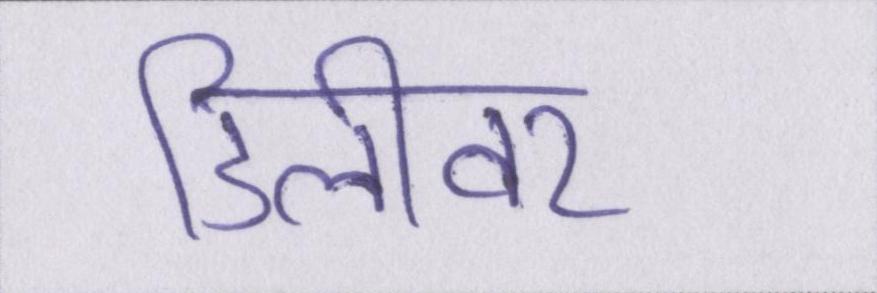 डिलीवर